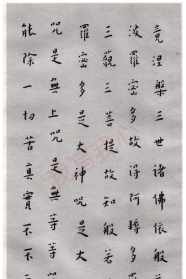 竟涅槃三世諸佛依般
波羅蜜多故得阿耨多
三藐三菩提故知般若
羅蜜多是大神咒是大
咒是無上咒是無等等
能除一切苦真實不